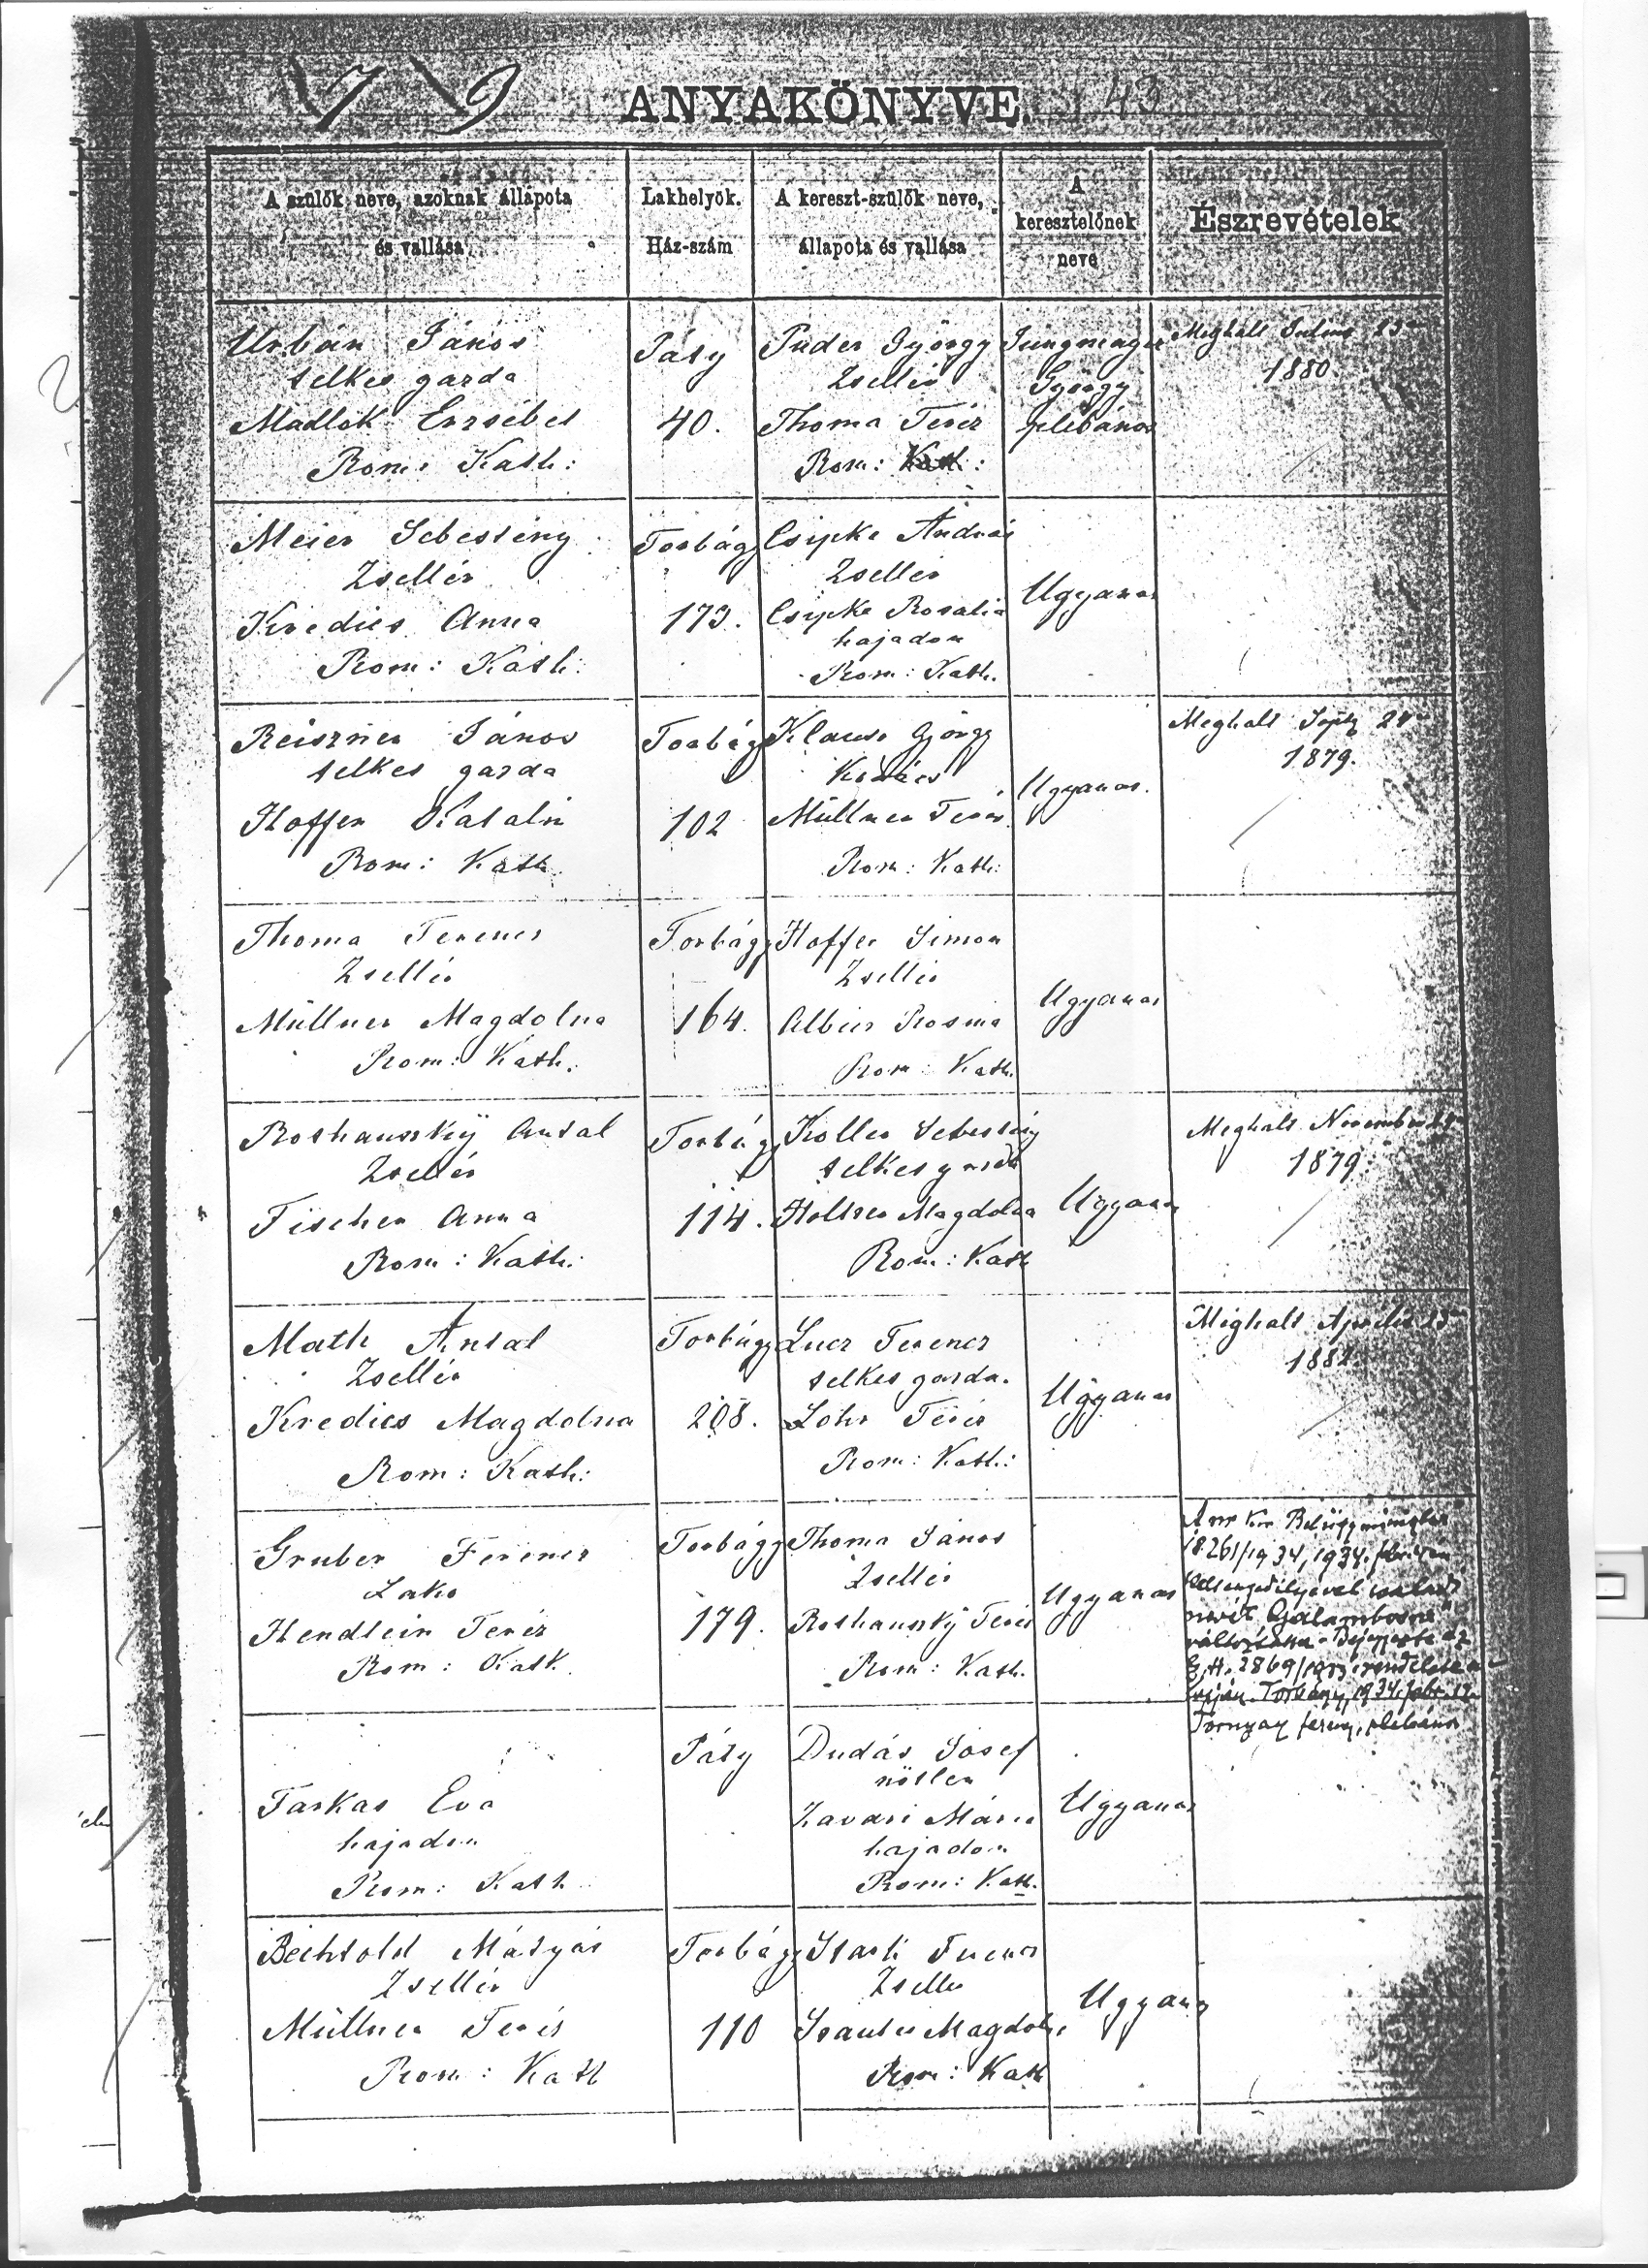 79
ANYAKÖNYVE. 43
A szülők neve, azoknak állapota
és vallása
Lakhelyök.
Ház-szám
A kereszt-szülők neve,
állapota és vallása
A
keresztelőnek
neve
Eszrevételek
Urbán János
telkes gazda
Madlok Erzsébet
Rom: Kath:
Páty
40.
Puder György
Zsellér
Thoma Teréz
Rom: Kath:
Jungmayer
György
plébános
Meghalt Julius 23
1880.
Meier Sebestény
Zsellér
Kredics Anna
Rom: Kath:
Torbágy
173.
Csipke András
Zsellér
Csipke Rosalia
hajadon
Rom: Kath.
Ugyanaz
Reiszner János
telkes gazda
Hoffer Katalin
Rom: Kath.
Torbágy
102
Klause György
Kovács
Müllner Teréz
Rom: Kath:
Ugyanaz.
Meghalt Sept 24
1879.
Thoma Ferencz
Zsellér
Müllner Magdolna
Rom: Kath.
Torbágy
164.
Hoffer Simon
Zsellér
Rosina
Rom: Kath.
Ugyanaz
Roshanszkÿ Antal
Zsellér
Fischer Anna
Rom: Kath:
Torbágy
114.
Koller Sebestény
telkes gazda
Magdolna
Rom: Kath
Ugyanaz
Meghalt November
1879.
Math Antal
Zsellér
Kredics Magdolna
Rom: Kath:
Torbágy
208.
Ferencz
telkes gazda.
Löhr Teréz
Rom: Kath:
Ugyanaz
Meghalt Aprilis 23
Gruber Ferencz
Lakó
Hendlein Teréz
Rom: Kath.
Torbágy
179.
Thoma János
Zsellér
Roshanszkÿ Teréz
Rom: Kath.
Ugyanaz
A m. kir. Belügyminiszter
18261/1934, 1934. febr.
engedélyével család
nevét "Galambosra"
változtatta. Bejegyezte az
E. H. 2869/1933 rendelete
alapján. Torbágy, 1934. febr. 17.
Tornyay ferenc, plébános
Farkas Éva
hajadon
Rom: Kath
Páty
Dudás Josef
nőtlen
Zavari Mária
hajadon
Rom: Kath.
Ugyanaz
Bechtold Mátyás
Zsellér
Müllner Teréz
Rom: Kath
Torbágy
110
Starli Ferencz
Zsellér
Magdolna
Rom: Kath
Ugyanaz